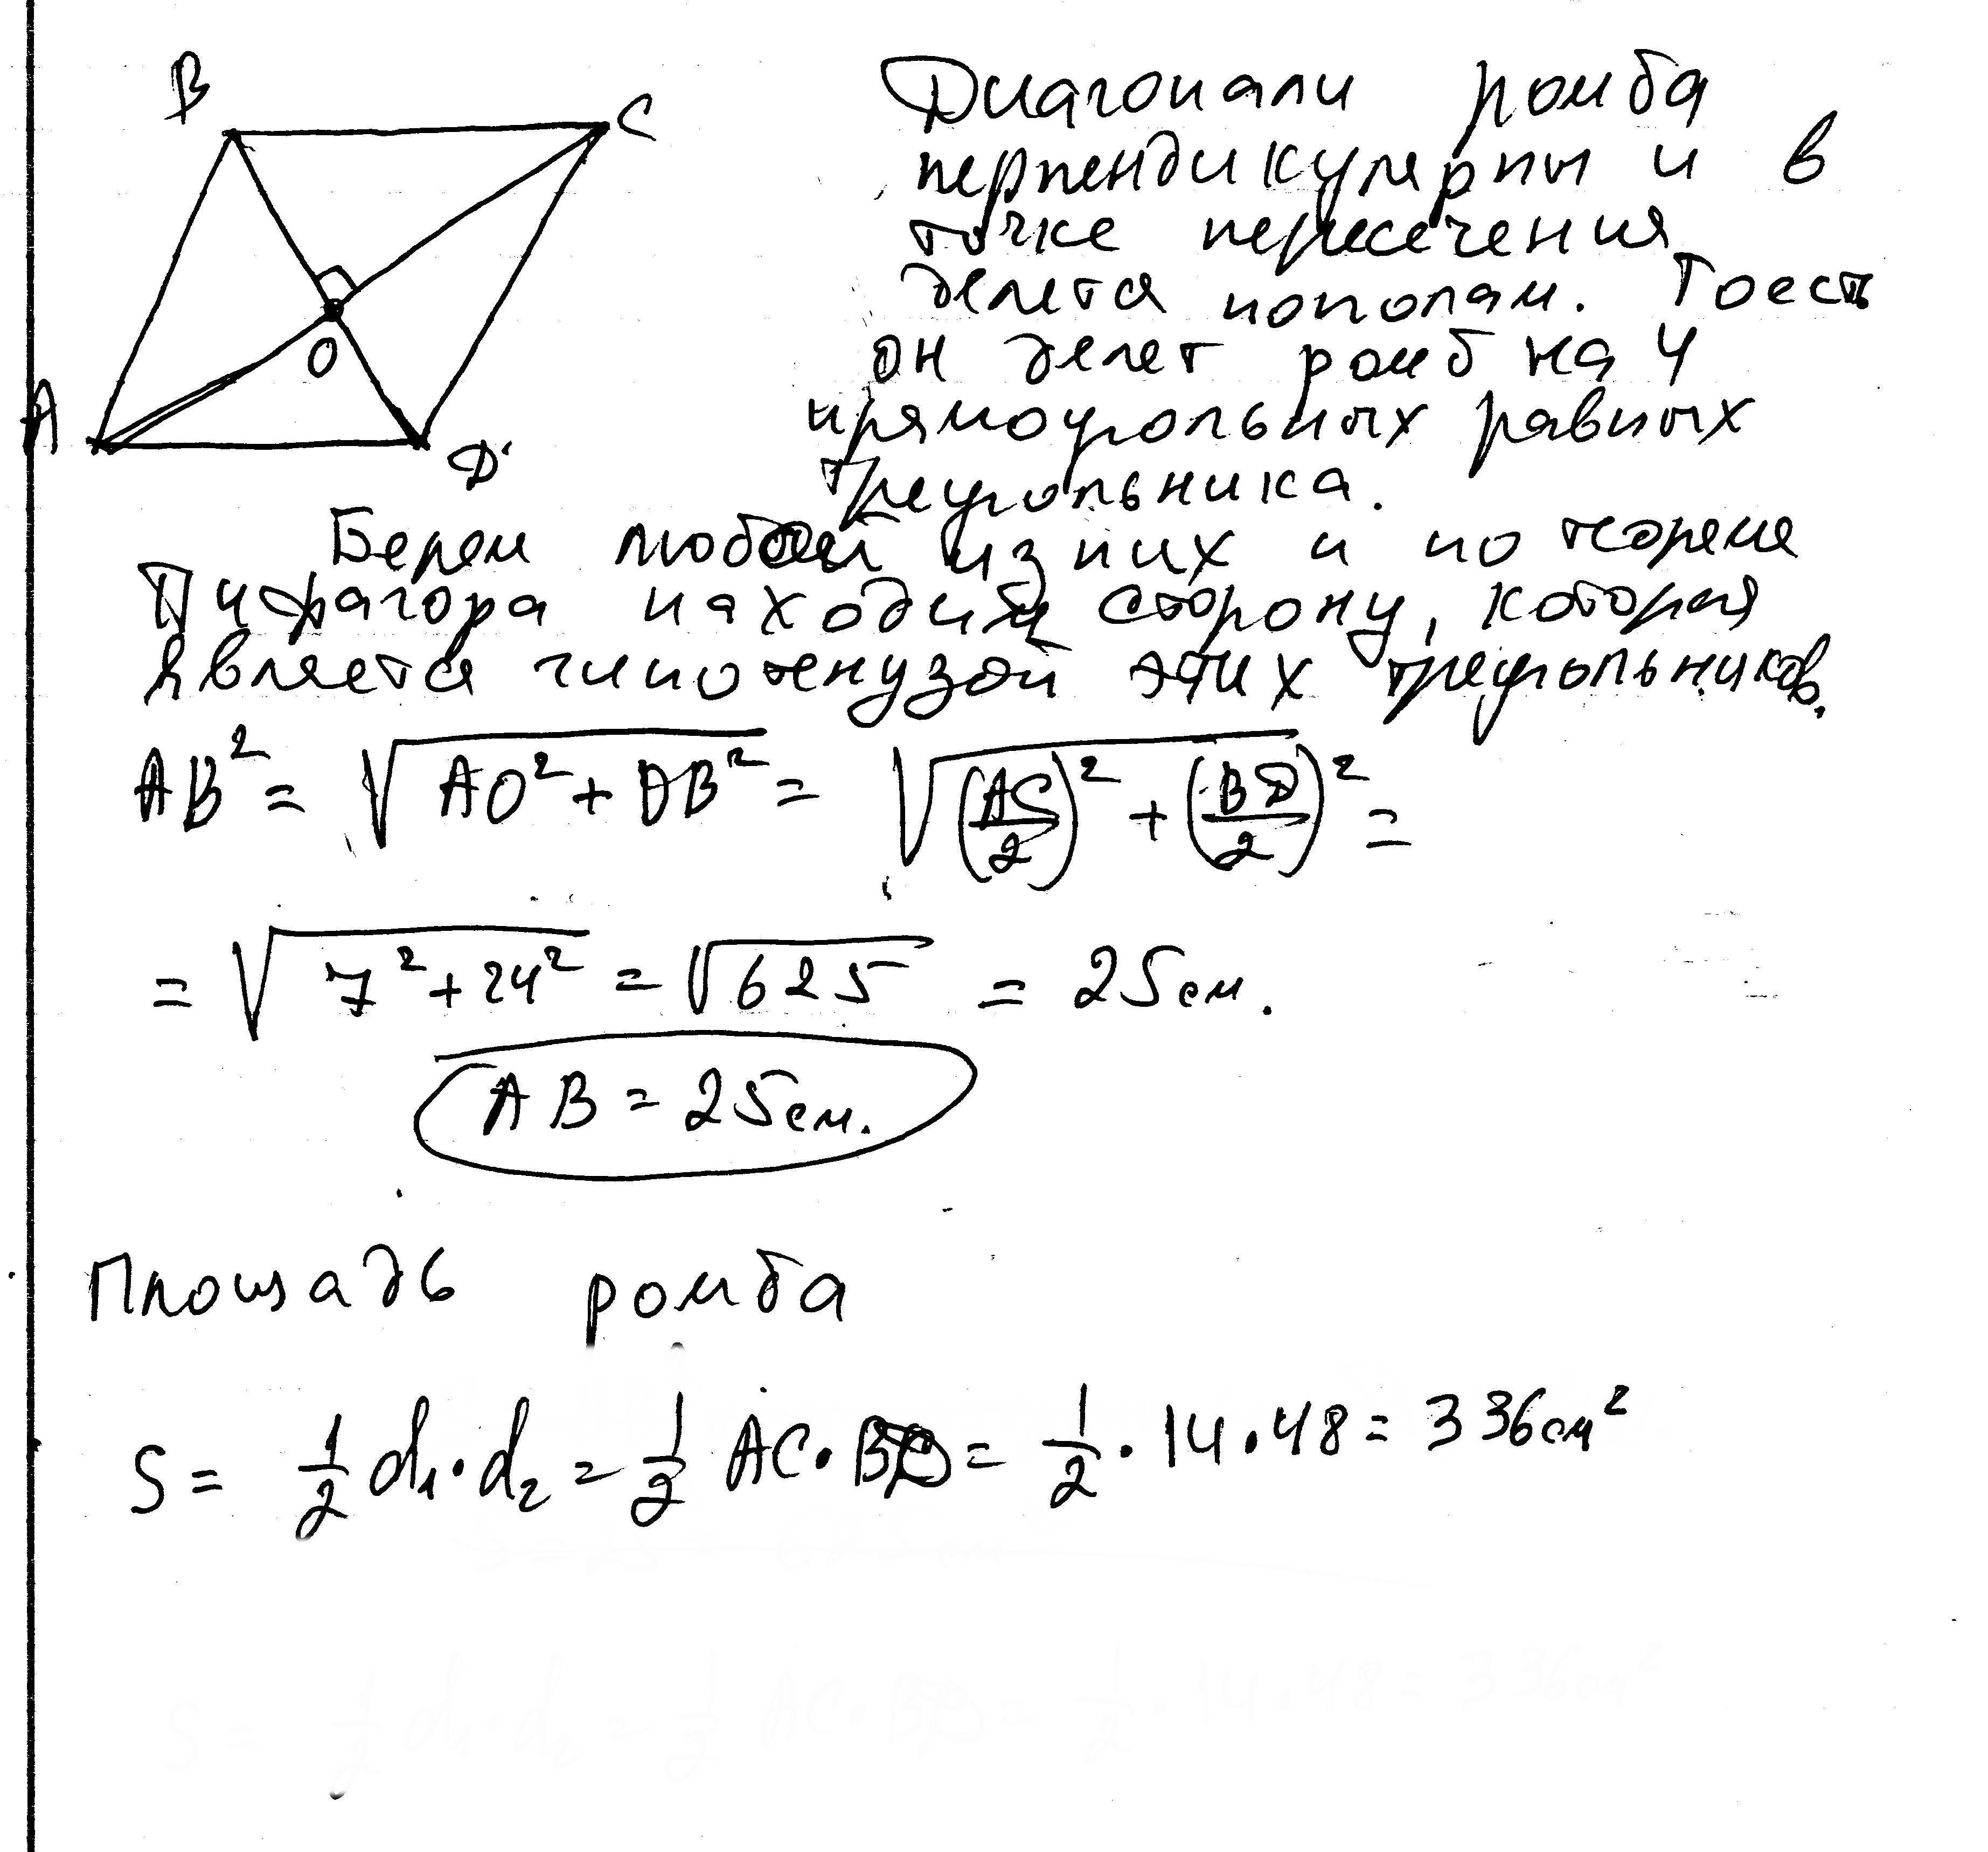 B
C
O
A
D
Диагонали ромба
перпендикулярны и в
точке пересечения
делетя пополам. Тоесть
он делет ромб на 4
прямоугольных равных
треугольника.
Берем любой из них и по теореме
Пифагора находим сторону, которая
является гипотенузой этих треугольников.
AB² = √(AO² + OB²) = √((AC/2)² + (BD/2)²) =
= √(7² + 24²) = √625 = 25 см.
AB = 25 см.
Площадь ромба
S = 1/2 d₁ · d₂ = 1/2 AC · BD = 1/2 · 14 · 48 = 336 см²